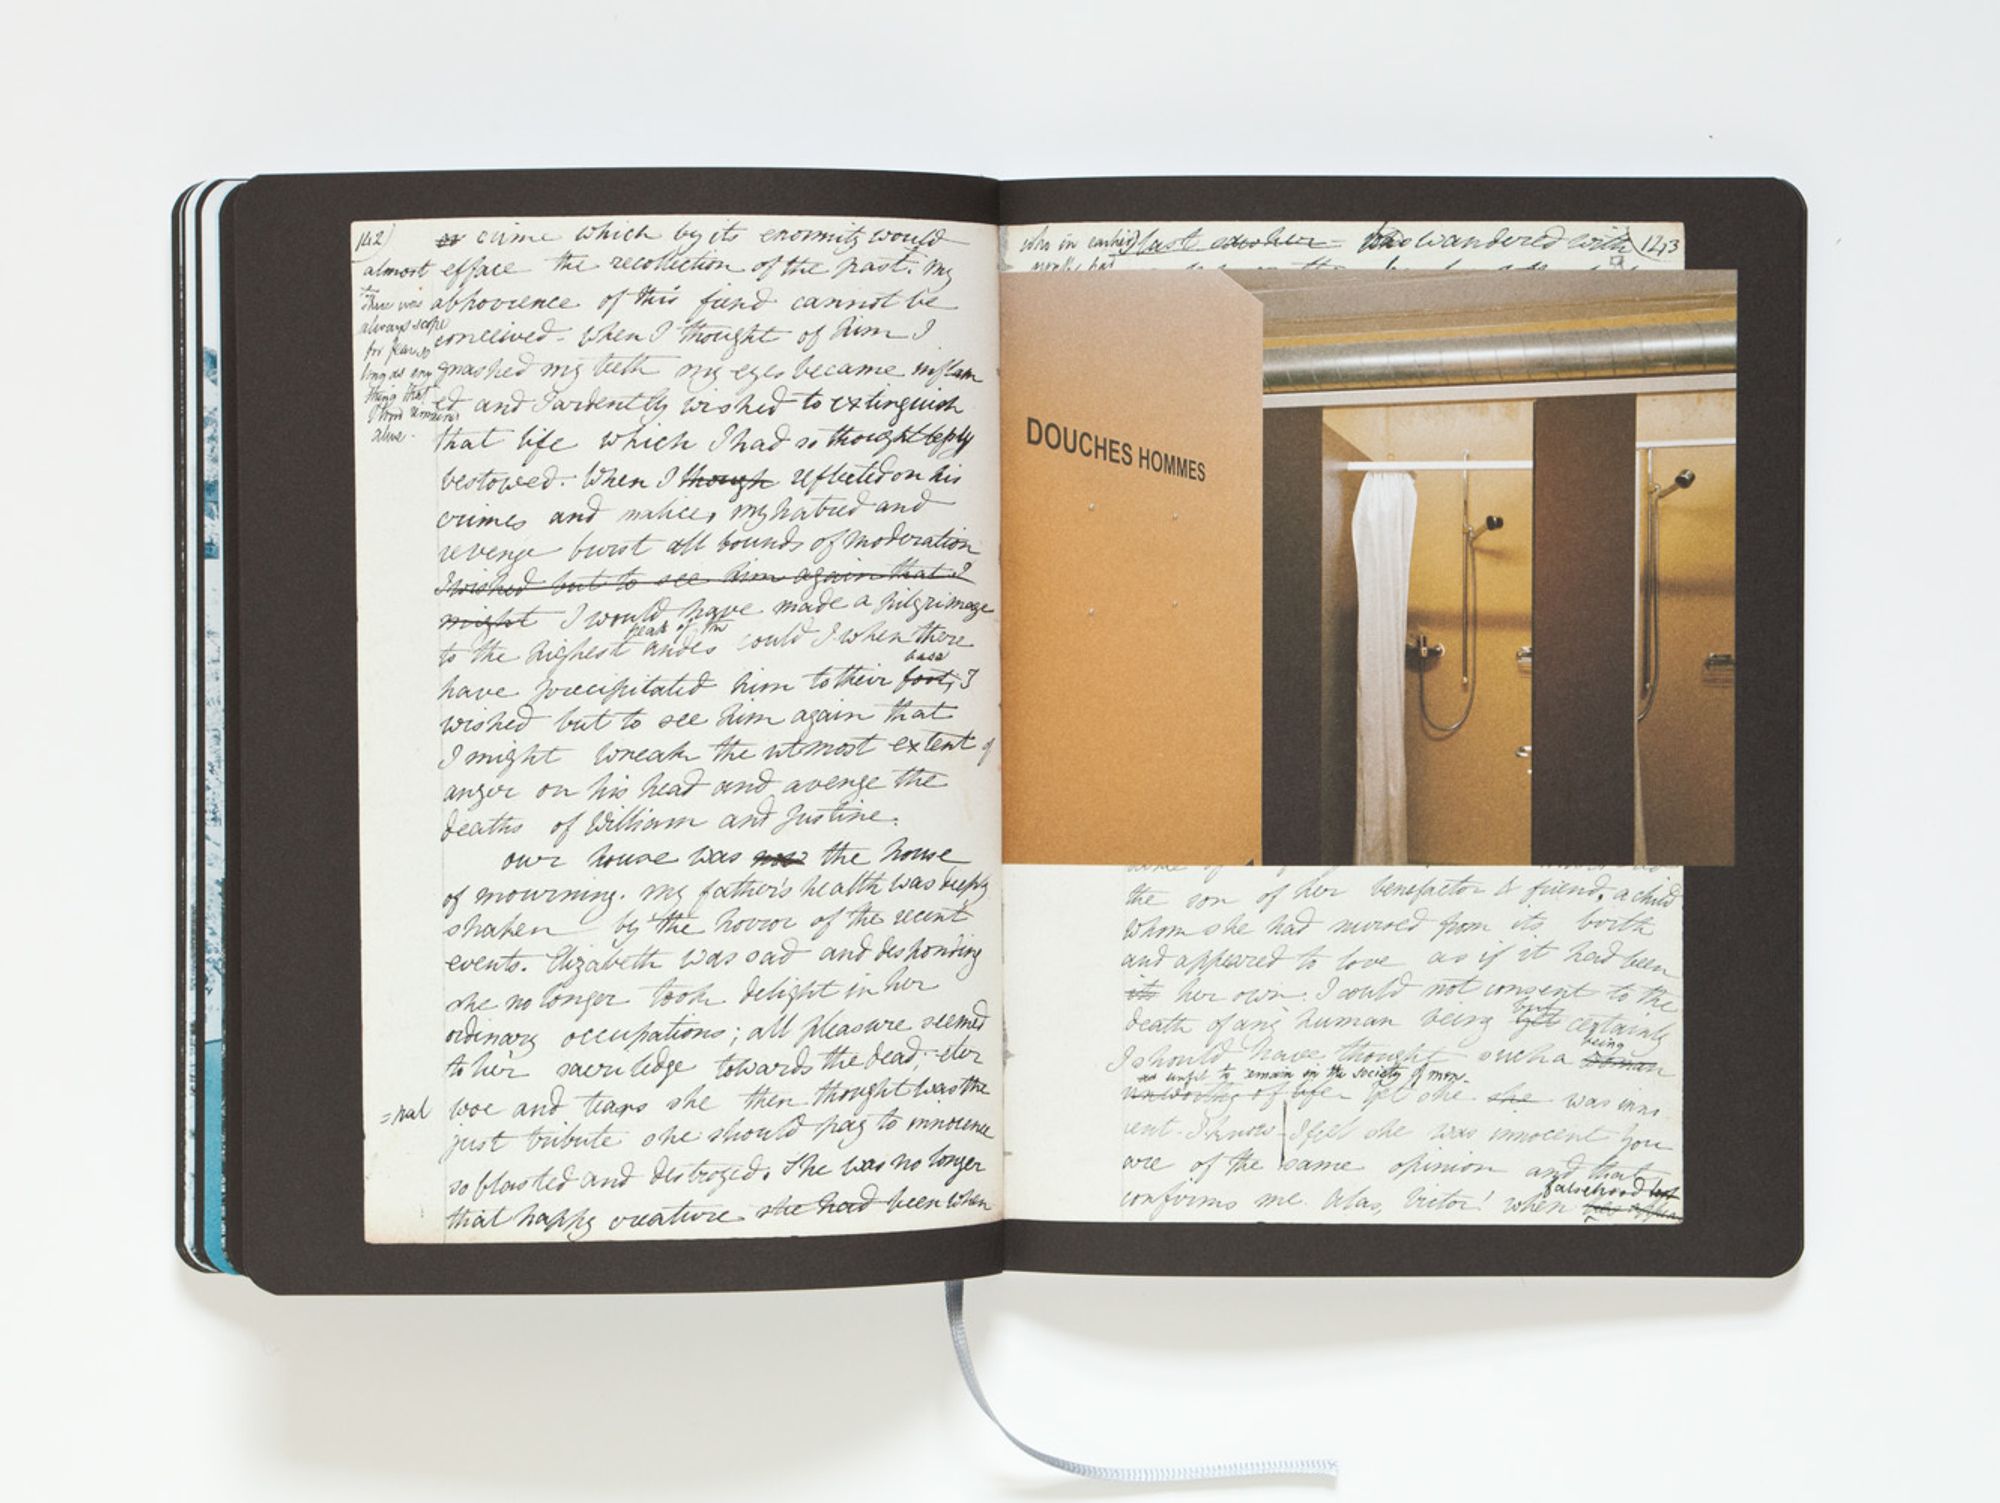 142)
or crime which by its enormity would
almost efface the recollection of the past. My
abhorrence of this fiend cannot be
conceived - When I thought of him I
gnashed my teeth my eyes became inflam
ed and I ardently wished to extinguish
that life which I had so thoughtlessly
bestowed. When I though reflected on his
crimes and malice, my hatred and
revenge burst all bounds of moderation
I wished but to see him again that I
might I would have made a pilgrimage
peak of the
to the highest andes could I when there
base
have precipitated him to their foot, I
wished but to see him again that
I might wreak the utmost extent of
anger on his head and avenge the
deaths of William and Justine.
our house was now the house
of mourning. My father's health was deeply
shaken by the horror of the recent
events. Elizabeth was sad and desponding
she no longer took delight in her
ordinary occupations; all pleasure seemed
to her sacriledge towards the dead; eter
=nal woe and tears she then thought was the
just tribute she should pay to innocence
so blasted and destroyed. She was no longer
that happy creature she had been when
there were
always scope
for fear so
long as any
thing that
I loved remained
alive.
who in earlier
wandered with (123
DOUCHES HOMMES
the son of her benefactor & friend, a child
whom she had nursed from its birth
and appeared to love as if it had been
its her own. I could not consent to the
but
death of any human being yet certainly
being
I should have thought such a woman
as unfit to remain in the society of men.
unworthy of life - Yet she she was inno
cent - I know I feel she was innocent you
are of the same opinion and that
confirms me. Alas, Victor! when
falsehood